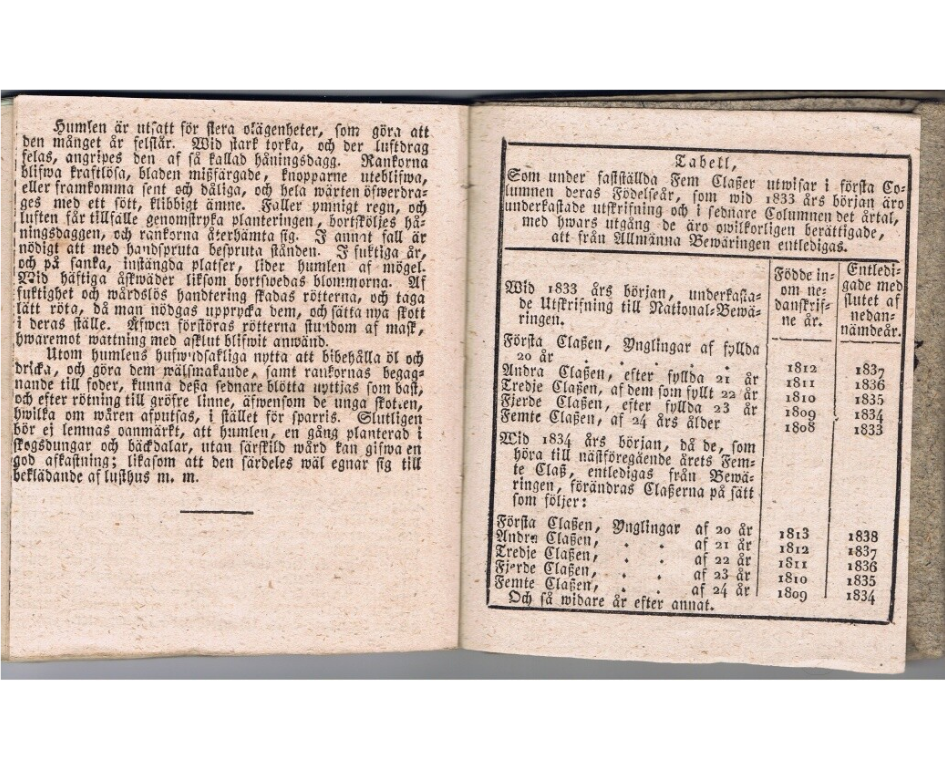 Humlen är utsatt för flera olägenheter, som göra att
den månget år felslår. Wid stark torka, och der luftdrag
felas, angripes den af så kallad håningsdagg. Rankorna
blifwa kraftlösa, bladen mißfärgade, knopparne uteblifwa,
eller framkomma sent och dåliga, och hela wärten öfwerdra-
ges med ett sött, klibbigt ämne. Faller ymnigt regn, och
luften får tillfälle genomstryka planteringen, bortsköljes hå-
ningsdaggen, och rankorna återhämta sig. I annat fall är
nödigt att med handspruta bespruta stånden. I fuktiga år,
och på sanka, instängda platser, lider humlen af mögel.
Wid häftiga åskwäder liksom bortswedas blommorna. Af
fuktighet och wårdslös handtering skadas rötterna, och taga
lätt röta, då man nödgas upprycka dem, och sätta nya skott
i deras ställe. Äfwen förstöras rötterna stundom af mask,
hwaremot wattning med asklut blifwit anwänd.
Utom humlens hufwudsakliga nytta att bibehålla öl och
dricka, och göra dem wälsmakande, samt rankornas begag-
nande till foder, kunna deßa sednare blötta nyttjas som bast,
och efter rötning till gröfre linne, äfwensom de unga skotten,
hwilka om wåren afputsas, i stället för sparris. Slutligen
bör ej lemnas oanmärkt, att humlen, en gång planterad i
skogsdungar och bäckdalar, utan särskild wård kan gifwa en
god afkastning; likasom att den särdeles wäl egnar sig till
beklädande af lusthus m. m.
Tabell,
Som under fastställda Fem Claßer utwisar i första Co-
lumnen deras Födelseår, som wid 1833 års början äro
underkastade utskrifning och i sednare Columnen det årtal,
med hwars utgång de äro owilkorligen berättigade,
att från Allmänna Bewäringen entledigas.
Wid 1833 års början, underkasta-
de Utskrifning till National-Bewä-
ringen.
Födde in-
om ne-
danskrif-
ne år.
Entledi-
gade med
slutet af
nedan-
nämde år.
Första Claßen, Ynglingar af fyllda
20 år . . . 1812 1837
Andra Claßen, efter fyllda 21 år 1811 1836
Tredje Claßen, af dem som fyllt 22 år 1810 1835
Fjerde Claßen, efter fyllda 23 år 1809 1834
Femte Claßen, af 24 års ålder 1808 1833
Wid 1834 års början, då de, som
höra till nästföregående årets Fem-
te Claß, entledigas från Bewä-
ringen, förändras Claßerna på sätt
som följer:
Första Claßen, Ynglingar af 20 år 1813 1838
Andra Claßen, . . af 21 år 1812 1837
Tredje Claßen, . . af 22 år 1811 1836
Fjerde Claßen, . . af 23 år 1810 1835
Femte Claßen, . . af 24 år 1809 1834
Och så widare år efter annat.